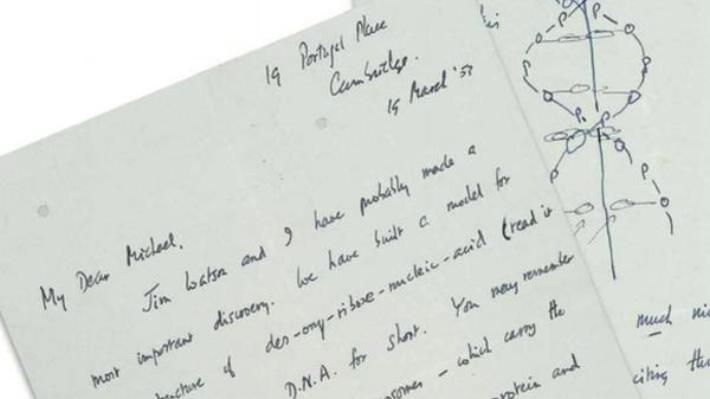 19 Portugal Place
Cambridge.
19 March '53
My Dear Michael,
Jim Watson and I have probably made a
most important discovery. We have built a model for
structure of des-oxy-ribose-nucleic-acid (read it
D.N.A. for short. You may remember
which carry the
protein and
much